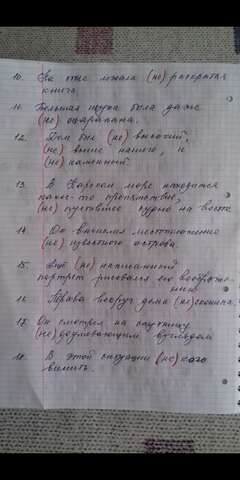 10. На столе лежала (не) раскрытая
книга.
11. Большая щука была даже
(не) оцарапана.
12. Дом был (не) высокий,
(не) выше нашего, и
(не) каменный.
13. В Карском море находится
какое-то препятствие,
(не) пустившее судно на восток.
14. Он вычислил местоположение
(не) известного острова.
15. Ещё (не) написанный
портрет рисовался его воображе-
нию
16. Трава вокруг дома (не) скошена.
17. Он смотрел на паутину
(не) доумевающим взглядом
18. В этой ситуации (не) кого
винить.